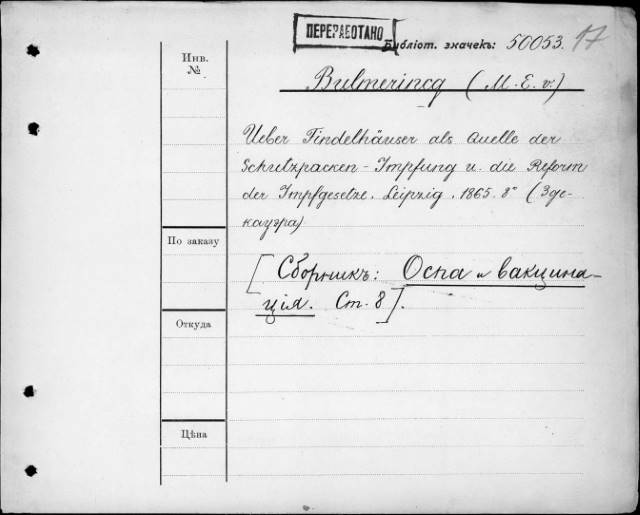 ПЕРЕРАБОТАНО
Библіот. значекъ: 50053. 17
Инв.
№
Bulmerincq (M. E. v.)
Ueber Findelhäuser als Quelle der
Schutzpocken-Impfung u. die Reform
der Impfgesetze. Leipzig. 1865. 8° (3 де-
каурa)
[Сборникъ: Оспа и вакцина-
ція. Ст. 8].
По заказу
Откуда
Цѣна